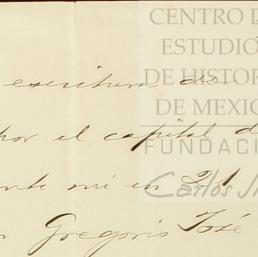 CENTRO D
ESTUDIO
DE HISTOR
DE MEXIC
FUNDACI
Carlos Sl
escritura de
por el capital d
ente mi en 21
Gregorio José